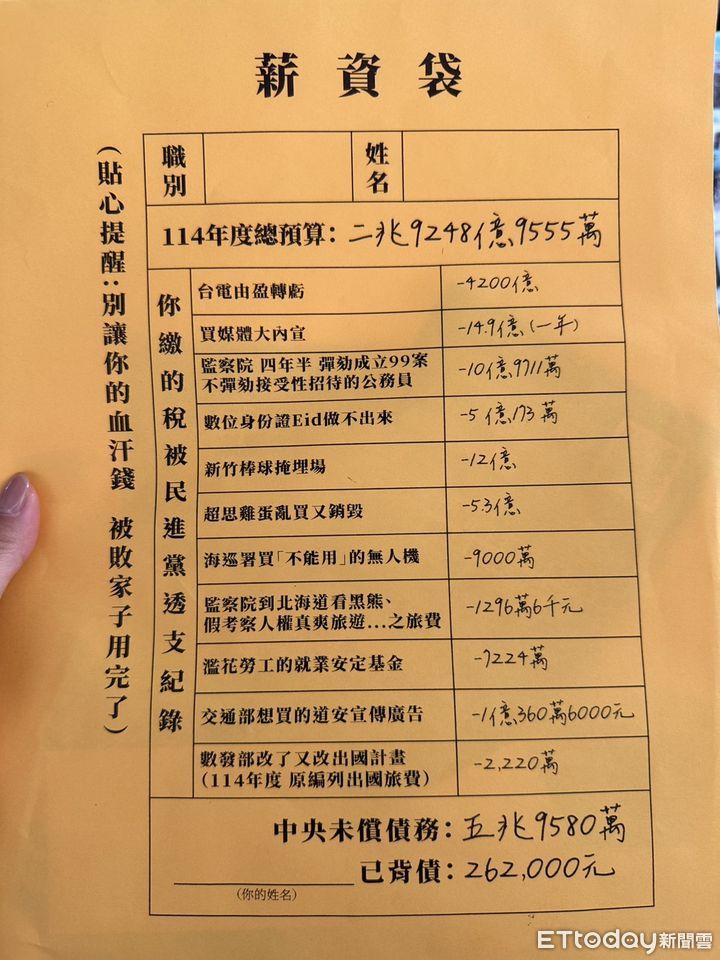 薪資袋
(貼心提醒:別讓你的血汗錢 被敗家子用完了)
職別
姓名
114年度總預算: 二兆9248億9555萬
你繳的稅被民進黨透支紀錄
台電由盈轉虧 -4200億
買媒體大內宣 -14.9億(一年)
監察院 四年半 彈劾成立99案
不彈劾接受性招待的公務員 -10億9711萬
數位身份證Eid做不出來 -5億173萬
新竹棒球掩埋場 -12億
超思雞蛋亂買又銷毀 -5.3億
海巡署買「不能用」的無人機 -9000萬
監察院到北海道看黑熊、
假考察人權真爽旅遊...之旅費 -1296萬6千元
濫花勞工的就業安定基金 -7224萬
交通部想買的道安宣傳廣告 -1億360萬6000元
數發部改了又改出國計畫
(114年度 原編列出國旅費) -2,220萬
中央未償債務: 五兆9580萬
已背債: 262,000元
(你的姓名)
ETtoday新聞雲